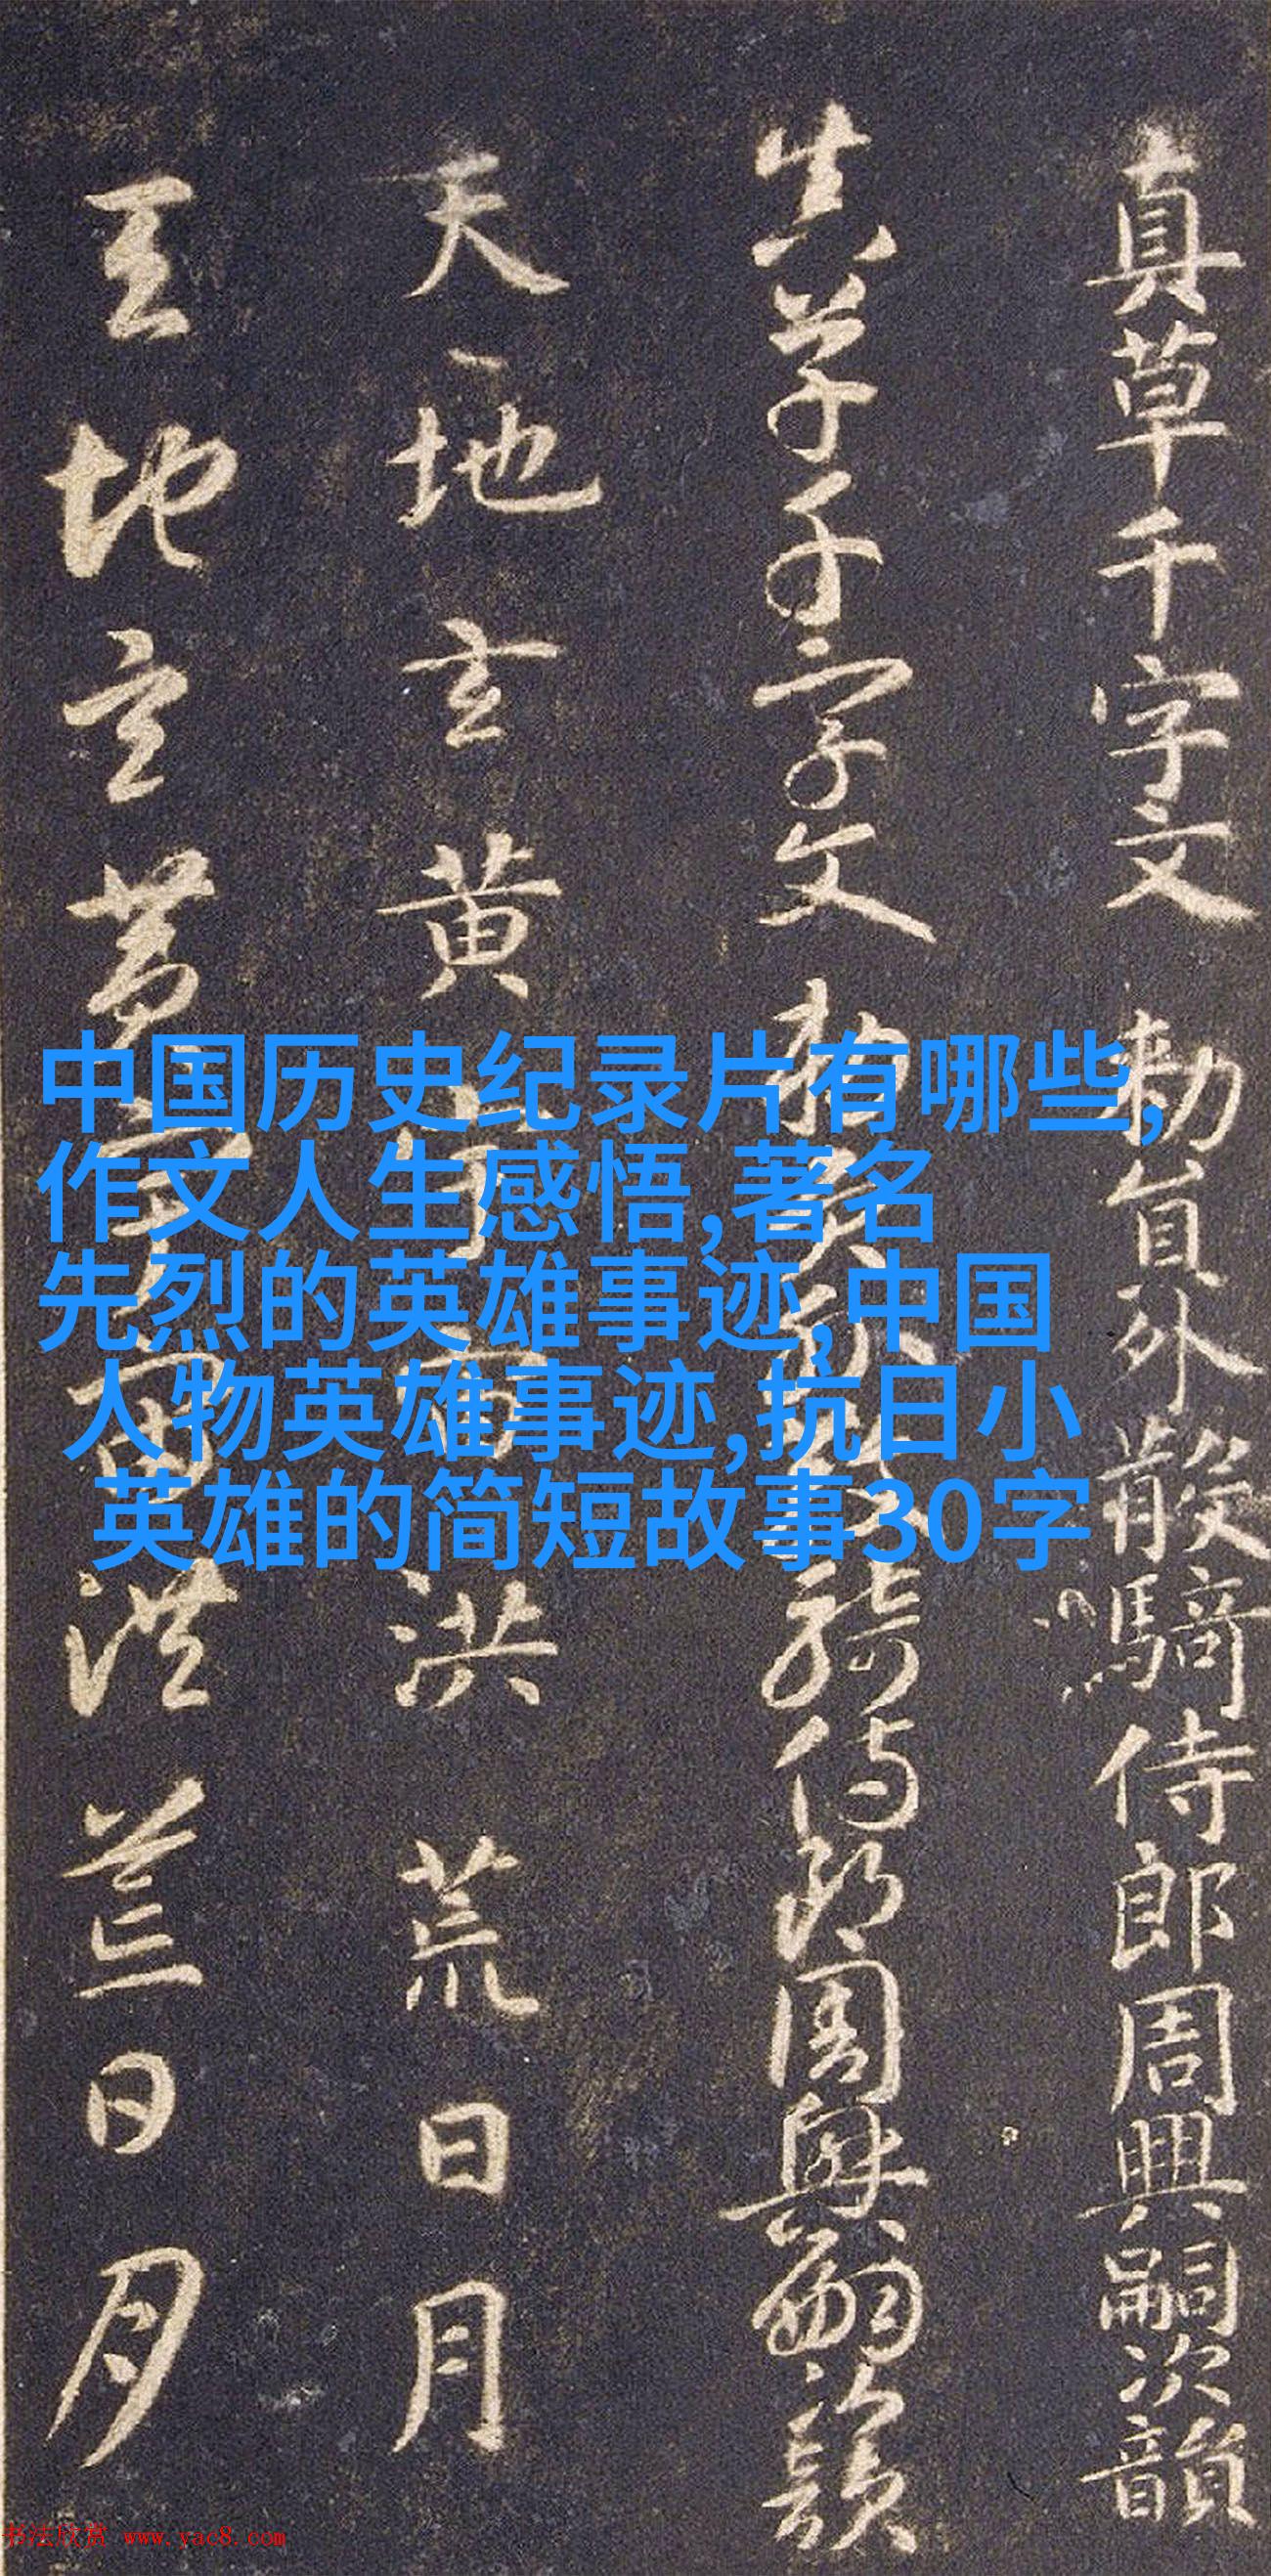 真草千字文 敕員外散騎侍郎周興嗣次韻
真草千字文
天地玄黄宇宙洪荒日月
天地玄黄宇宙洪荒日月
中国历史纪录片有哪些,
作文人生感悟,著名
先烈的英雄事迹,中国
人物英雄事迹,抗日小
英雄的简短故事30字
书法欣赏 www.yac8.com